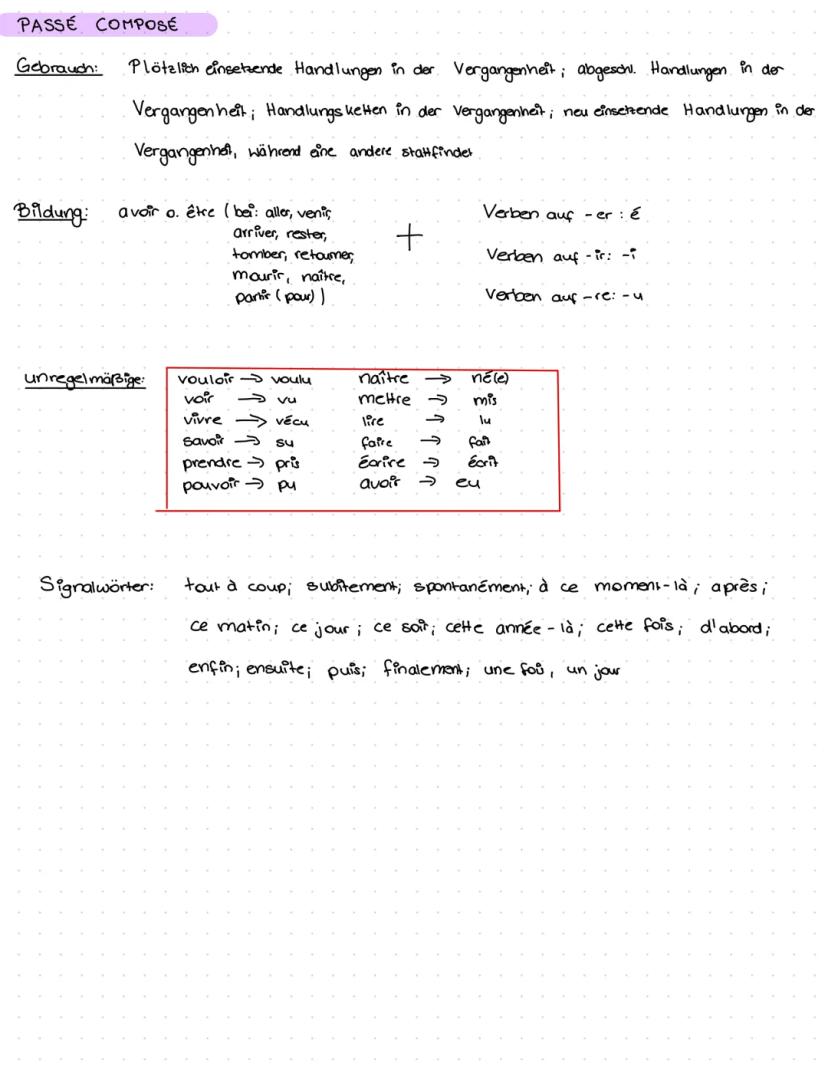 PASSÉ COMPOSÉ
Gebrauch: Plötzlich einsetzende Handlungen in der Vergangenheit; abgeschl. Handlungen in der
Vergangenheit; Handlungsketten in der Vergangenheit; neu einsetzende Handlungen in der
Vergangenheit, während eine andere stattfindet
Bildung: avoir o. être (bei: aller, venir, + Verben auf -er : é
arriver, rester,
tomber, retourner, Verben auf -ir: -i
mourir, naître,
partir (pour) ) Verben auf -re: -u
unregelmäßige: vouloir → voulu naître → né(e)
voir → vu mettre → mis
vivre → vécu lire → lu
savoir → su faire → fait
prendre → pris écrire → écrit
pouvoir → pu avoir → eu
Signalwörter: tout à coup; subitement; spontanément; à ce moment-là; après;
ce matin; ce jour; ce soir; cette année-là; cette fois; d'abord;
enfin; ensuite; puis; finalement; une fois, un jour